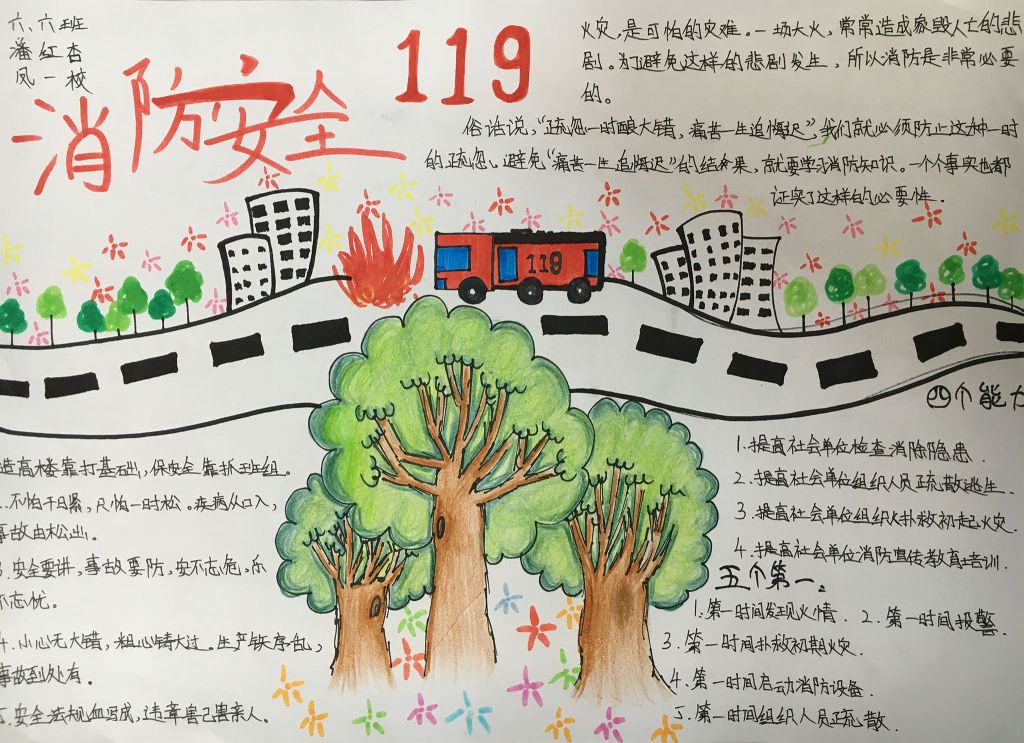 六、六班
潘红杏
凤一校
消防安全
119
火灾,是可怕的灾难。一场大火,常常造成家毁人亡的悲
剧。为了避免这样的悲剧发生,所以消防是非常必要
的。
俗话说,“疏忽一时酿大错,痛苦一生追悔迟”,我们就必须防止这种一时
的疏忽、避免“痛苦一生追悔迟”的结果,就要学习消防知识。一个个事实也都
证实了这样的必要性.
119
四个能力
1.提高社会单位检查消除隐患.
2.提高社会单位组织人员疏散逃生.
3.提高社会单位组织扑救初起火灾.
4.提高社会单位消防宣传教育培训.
五个第一.
1.第一时间发现火情. 2.第一时间报警.
3.第一时间扑救初期火灾.
4.第一时间启动消防设备.
5.第一时间组织人员疏散.
造高楼靠打基础,保安全靠抓班组。
.不怕千日累,只怕一时松。疾病从口入,
事故由松出.
3.安全要讲,事故要防,安不忘危,乐
不忘忧。
4.小心无大错,粗心铸大过.生产秩序乱,
事故到处有.
5.安全法规血写成,违章害己害亲人.